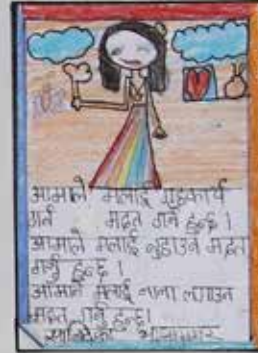 आमाले मलाई गृहकार्य
गर्न मद्दत गर्नु हुन्छ ।
आमाले मलाई नुहाउन मद्दत
गर्नु हुन्छ ।
आमाले मलाई नाना लगाउन
मद्दत गर्नु हुन्छ।